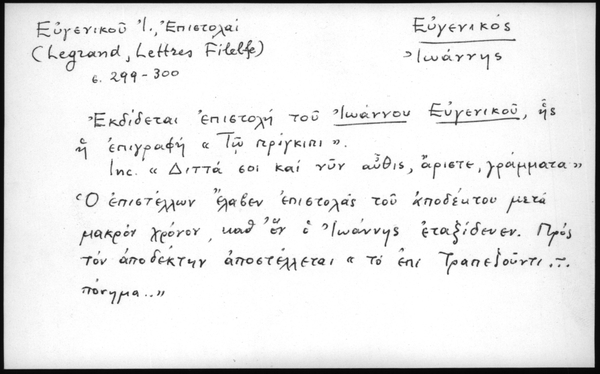 Εὐγενικοῦ Ἰ., Ἐπιστολαί
(Legrand, Lettres Filelfe)
σ. 299-300
Εὐγενικός
Ἰωάννης
Ἐκδίδεται ἐπιστολή τοῦ Ἰωάννου Εὐγενικοῦ, ἧς
ἡ ἐπιγραφή « Τῷ πρίγκιπι ».
Inc. « Διττά σοι καί νῦν αὖθις, ἄριστε, γράμματα »
Ὁ ἐπιστέλλων ἔλαβεν ἐπιστολάς τοῦ ἀποδέκτου μετά
μακρόν χρόνον, καθ᾽ ὅν ὁ Ἰωάννης ἐταξίδευεν. Πρός
τόν ἀποδέκτην ἀποστέλλεται « τό ἐπί Τραπεζοῦντι ...
πόνημα.. »